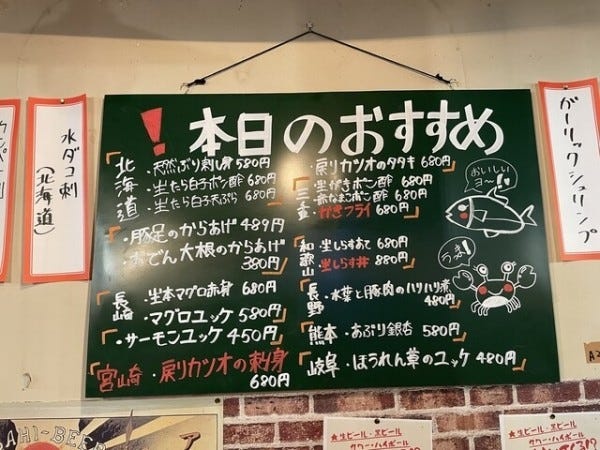 ！本日のおすすめ
北海道
・天然ぶり刺し身 580円
・生たら白子ポン酢 680円
・生たら白子天ぷら 680円
・豚足のからあげ 489円
・おでん大根のからあげ
380円
長崎
・生本マグロ赤身 680円
・マグロユッケ 580円
・サーモンユッケ 450円
宮崎・戻りカツオの刺身
680円
三重
・戻りカツオのタタキ 680円
・生がきポン酢 680円
・赤なまこポン酢 680円
・かきフライ 680円
和歌山
・生しらすあて 680円
・生しらす丼 880円
長野
・水菜と豚肉のハリハリ煮
480円
熊本・あぶり銀杏 580円
岐阜・ほうれん草のユッケ 480円
おいしいヨ〜
うま！
水ダコ刺
(北海道)
ガーリックシュリンプ
AHI-BEER
★生ビール・黒ビール
サワー・ハイボール
★生ビール・黒ビール
サワー・ハイボール